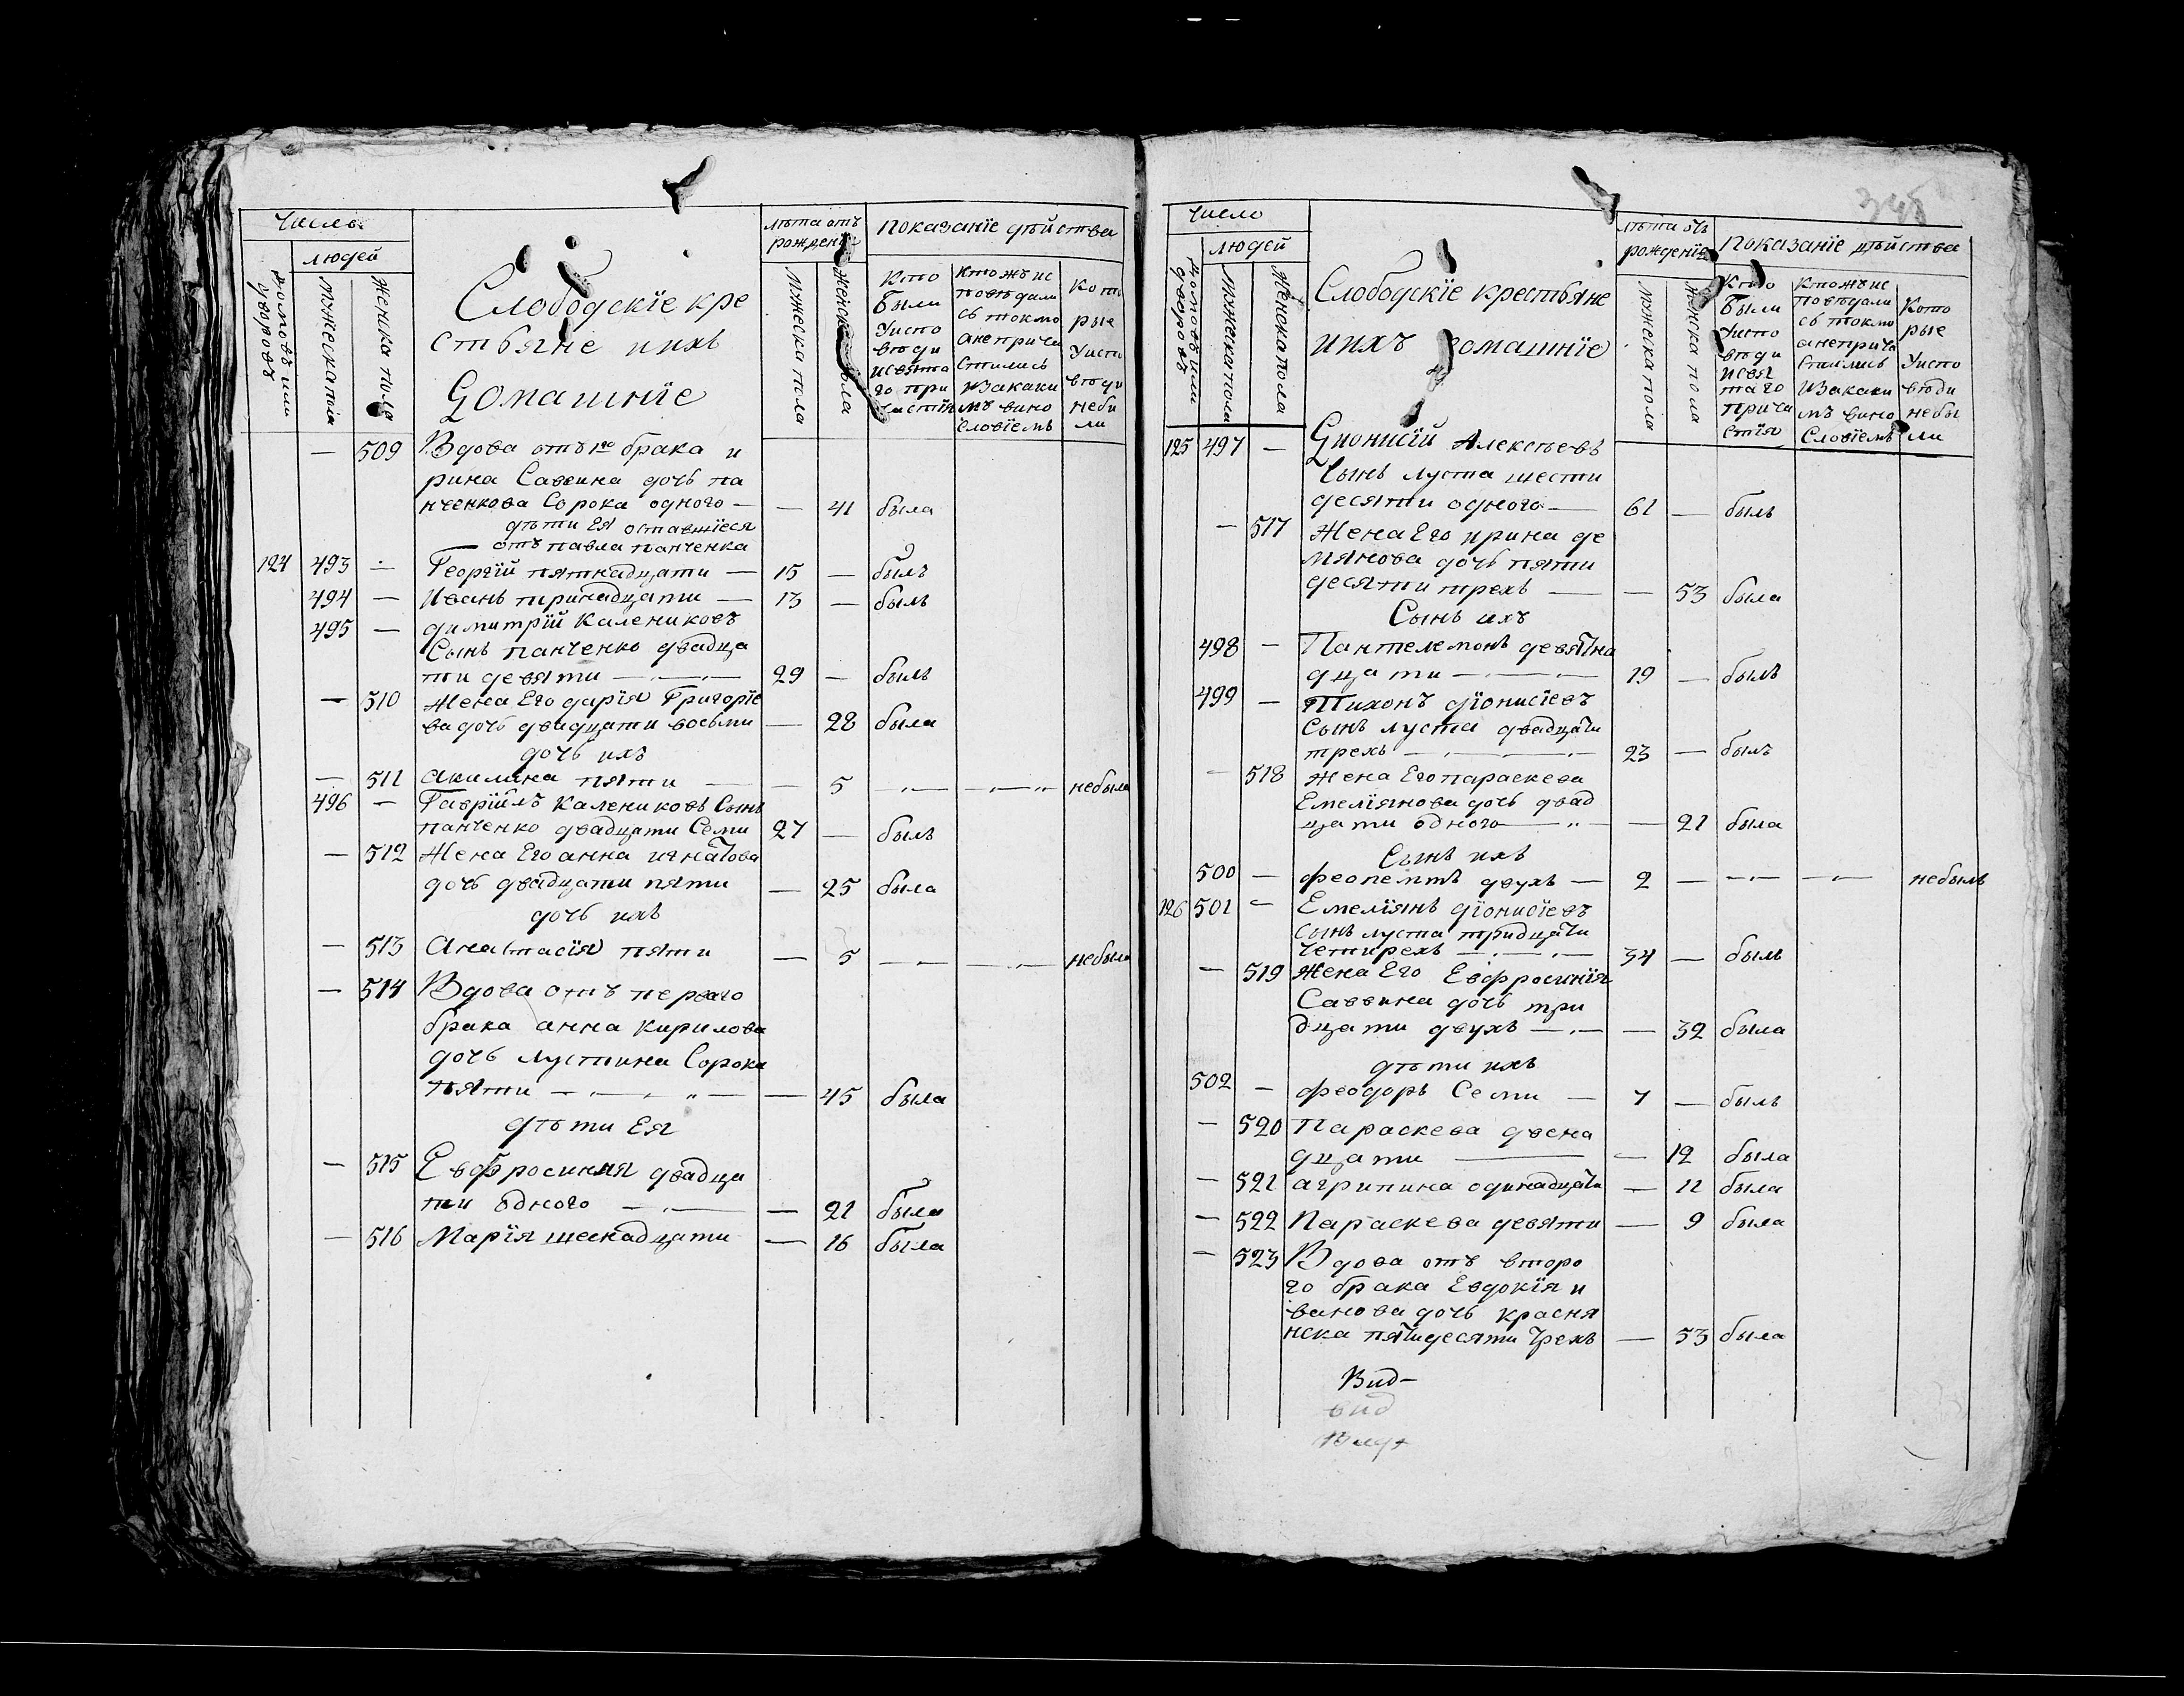 Число
людей
домовъ или дворовъ
мужеска пола
женска пола
Слободскїе кре
стьяне ихъ
Домашнїе
лѣта отъ
рожденїя
мужеска пола
женска пола
показанїе дѣйства
кто
были
уиспо
вѣди
исвята
го при
частїя
ктожъ ис
повѣдали
сь токмо
анеприча
стились
изакаки
мъ вино
словїемъ
кото
рые
уиспо
вѣди
небы
ли
— 509 Вдова отъ 1го брака и
рина Саввина дочь па
нченкова Сорока одного — — 41 была
дѣти Ея оставшїеся
отъ павла панченка
124 493 — Георгїй пятнадцати — 15 — былъ
494 — Иванъ тринадцати — 13 — былъ
495 — димитрїй Калениковъ
Сынъ панченко двадца
ти девяти — 29 — былъ
— 510 жена Его дарїя Григорїе
ва дочь двадцати восьми — 28 была
дочь ихъ
— 511 акилина пяти — — 5 — — небыла
496 — Гаврїилъ Калениковъ Сынъ
панченко двадцати Семи 27 — былъ
— 512 Жена Его анна игнатова
дочь двадцати пяти — 25 была
дочь ихъ
— 513 Анастасїя пяти — 5 — — небыла
— 514 Вдова отъ перваго
брака анна Кирилова
дочь лустина Сорока
пяти — — 45 была
дѣти Ея
— 515 Евфросиния двадца
ти одного — — 21 была
— 516 Марїя шеснадцати — 16 была
348
Число
людей
домовъ или дворовъ
мужеска пола
женска пола
Слободскїе крестьяне
ихъ домашнїе
лѣта отъ
рожденїя
мужеска пола
женска пола
показанїе дѣйства
кто
были
уиспо
вѣди
исвя
таго
прича
стїя
ктожъ ис
повѣдали
сь токмо
анеприча
стились
изакаки
мъ вино
словїемъ
кото
рые
уиспо
вѣди
небы
ли
125 497 — Дионисїй Алексѣевъ
Сынъ луста шести
десяти одного — 61 — былъ
— 517 Жена Его ирина де
мянова дочь пяти
десяти трехъ — — 53 была
Сынъ ихъ
498 — Пантелемонъ девятна
дцати — 19 — былъ
499 — Тихонъ дїонисїевъ
Сынъ луста двадцати
трехъ — 23 — былъ
— 518 жена Его параскева
Емелїянова дочь двад
цати одного — — 21 была
Сынъ ихъ
500 — феопемтъ двухъ — 2 — — — небылъ
126 501 — Емелїянъ дїонисїевъ
сынъ луста тридцати
четирехъ — 34 — былъ
— 519 жена Его Евфросинїя
Саввина дочь три
дцати двухъ — — 32 была
дѣти ихъ
502 — феодоръ Семи — 7 — былъ
— 520 Параскева двена
дцати — — 12 была
— 521 агрипина одинадцати — 11 была
— 522 Параскева девяти — 9 была
— 523 Вдова отъ второ
го брака Евдокїя и
ванова дочь красня
нска пятидесяти трехъ — 53 была
Вид-
вид